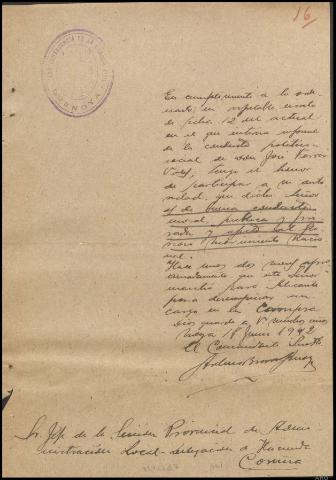 16
NOYA
En cumplimiento a lo orde-
nado en respetable escrito
de fecha 12 del actual
en el que interesa informe
de la conducta político
social de Don José
tengo el honor
de participar a su auto-
ridad, que dicho Señor
es de buena conducta
moral, publica y pri-
vada y afecto al Glo-
rioso Movimiento Nacio
nal.
Hace unos dos meses apro
ximadamente que este Señor
marchó para Alicante
para desempeñar un
cargo en la
Dios guarde a V. muchos años
Noya 18 Junio 1942
El Comandante Puesto
Sr. Jefe de la Sección Provincial de Admi-
nistración Local - delegación de Hacienda
Coruña